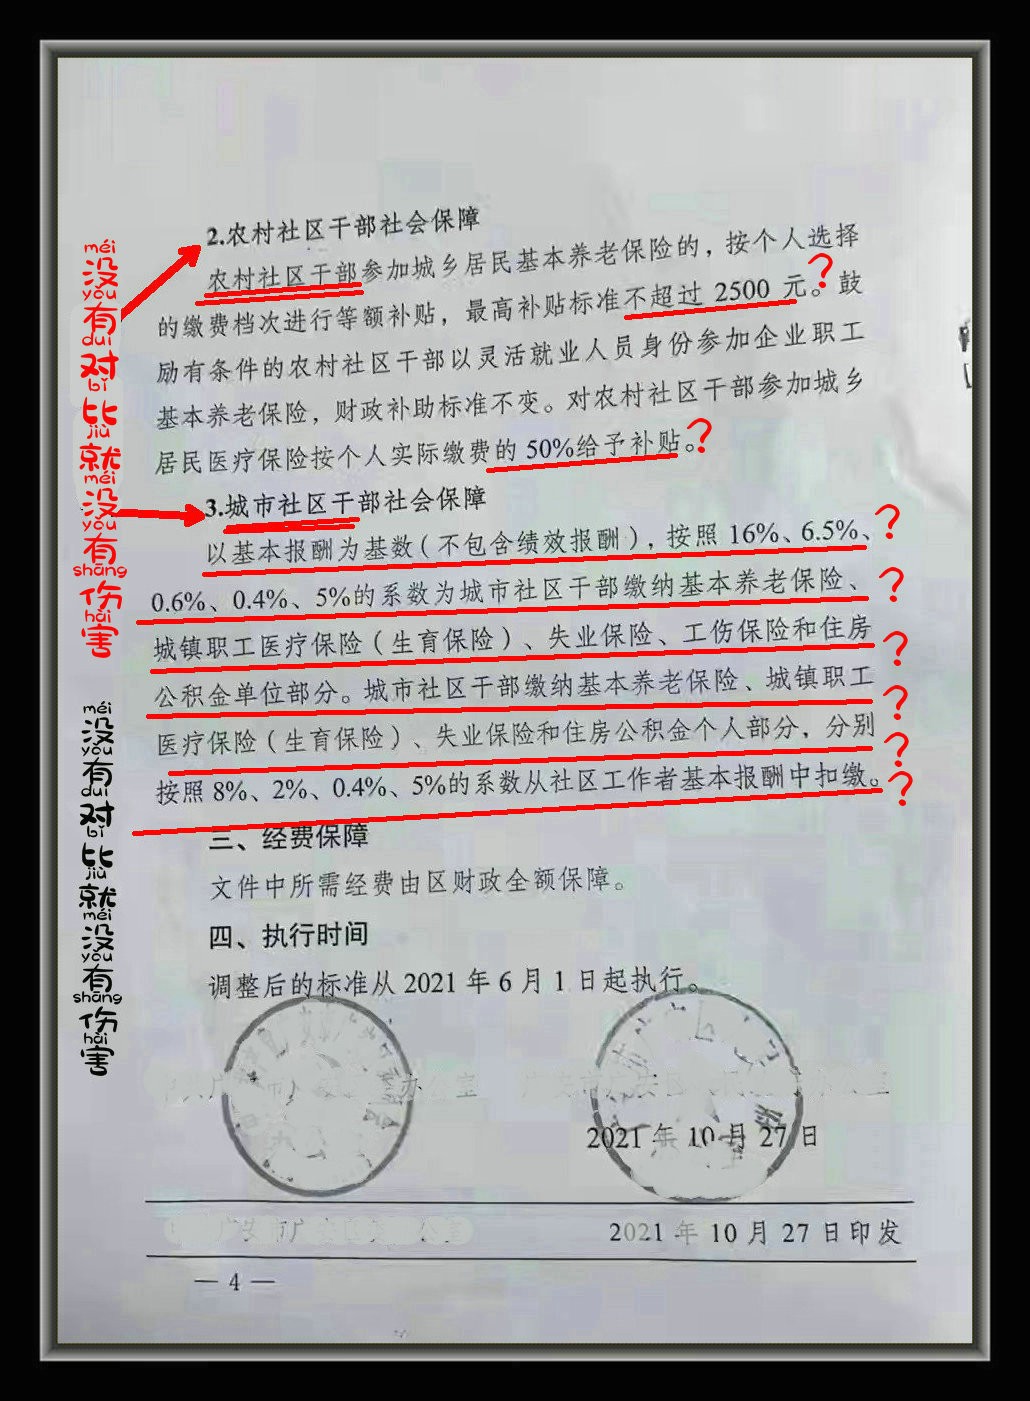 2.农村社区干部社会保障
农村社区干部参加城乡居民基本养老保险的，按个人选择
的缴费档次进行等额补贴，最高补贴标准不超过 2500 元。鼓
?
励有条件的农村社区干部以灵活就业人员身份参加企业职工
基本养老保险，财政补助标准不变。对农村社区干部参加城乡
居民医疗保险按个人实际缴费的 50%给予补贴。
?
3.城市社区干部社会保障
以基本报酬为基数（不包含绩效报酬），按照 16%、6.5%、
?
0.6%、0.4%、5%的系数为城市社区干部缴纳基本养老保险、
?
城镇职工医疗保险（生育保险）、失业保险、工伤保险和住房
?
公积金单位部分。城市社区干部缴纳基本养老保险、城镇职工
?
医疗保险（生育保险）、失业保险和住房公积金个人部分，分别
?
按照 8%、2%、0.4%、5%的系数从社区工作者基本报酬中扣缴。
?
三、经费保障
文件中所需经费由区财政全额保障。
四、执行时间
调整后的标准从 2021 年 6 月 1 日起执行。
2021 年 10 月 27 日
2021 年 10 月 27 日印发
— 4 —
méi yǒu duì bǐ jiù méi yǒu shāng hài
没有对比就没有伤害
méi yǒu duì bǐ jiù méi yǒu shāng hài
没有对比就没有伤害